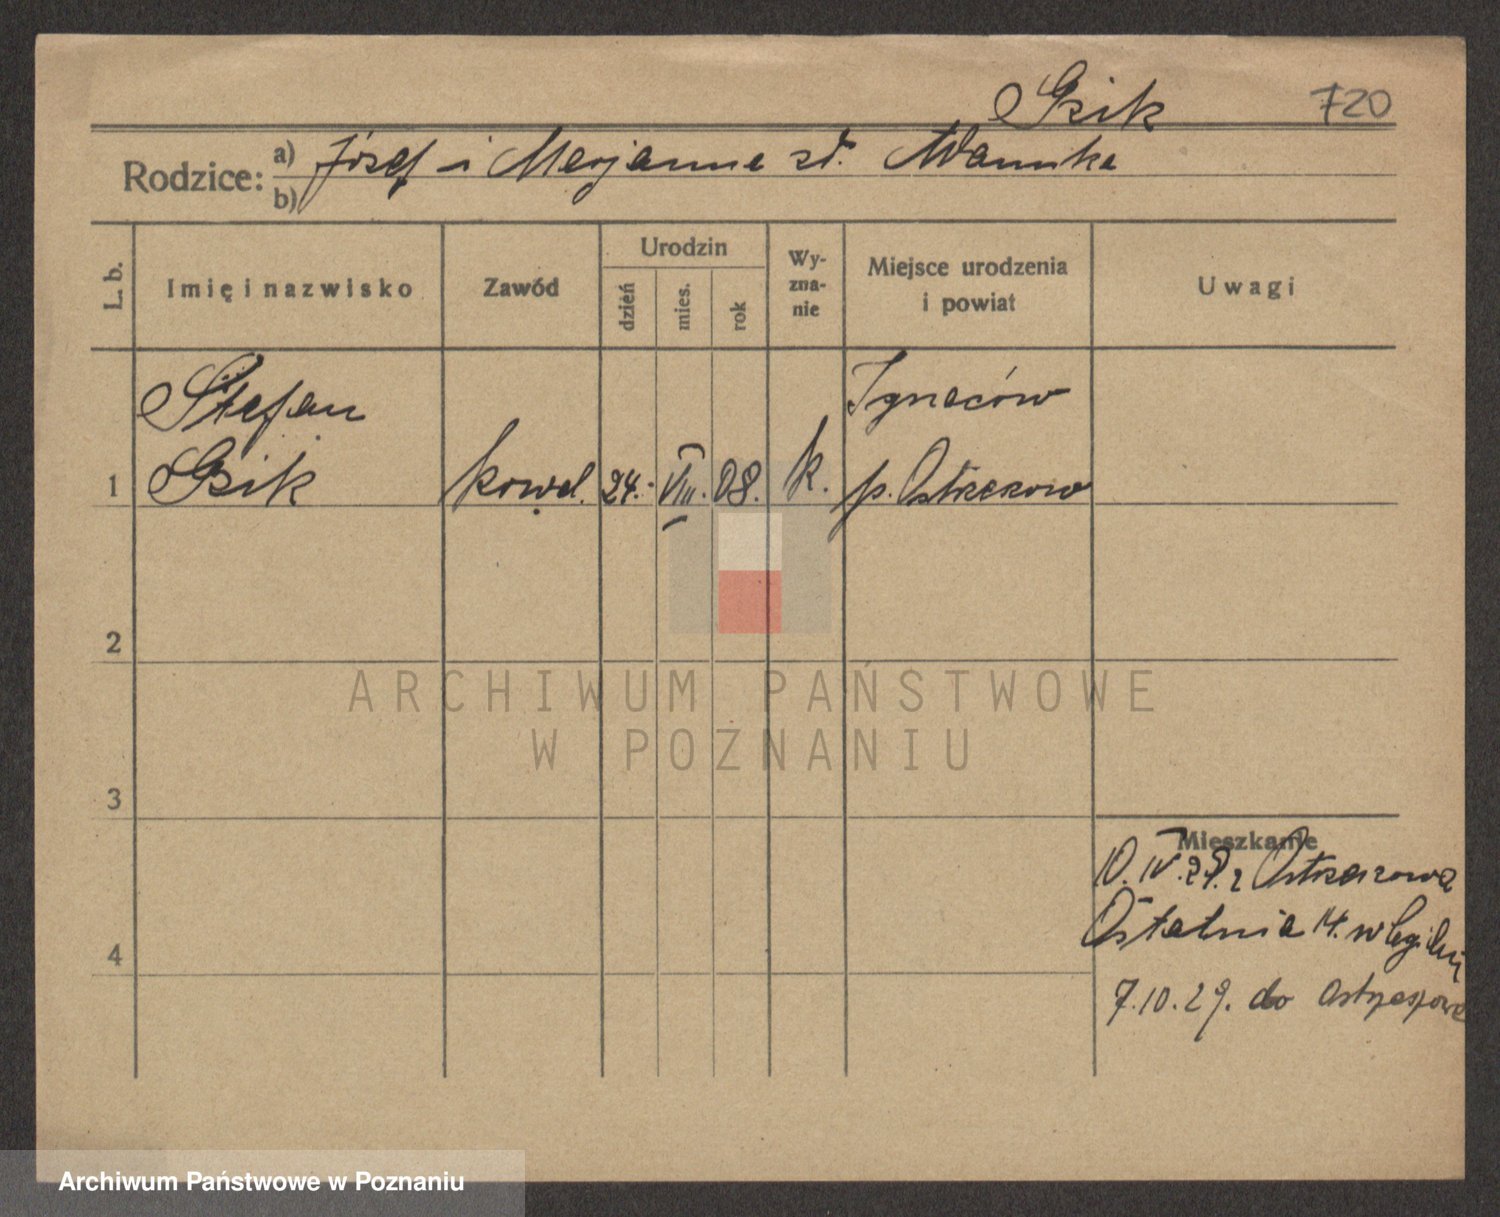 Gsik 720
Rodzice: a) Józef i Marjanna zd.
b)
L. b. Imię i nazwisko Zawód Urodzin dzień mies. rok Wy-zna-nie Miejsce urodzenia i powiat Uwagi
Stefan Ignaców
1 Gsik kowal. 24. VIII. 08. k. p. Ostrzeszow
2
ARCHIWUM PAŃSTWOWE
W POZNANIU
3
Mieszkanie
10. IV. 29. z Ostrzeszowa
4 Ostatnia 14.
7.10.29. do Ostrzeszowa
Archiwum Państwowe w Poznaniu